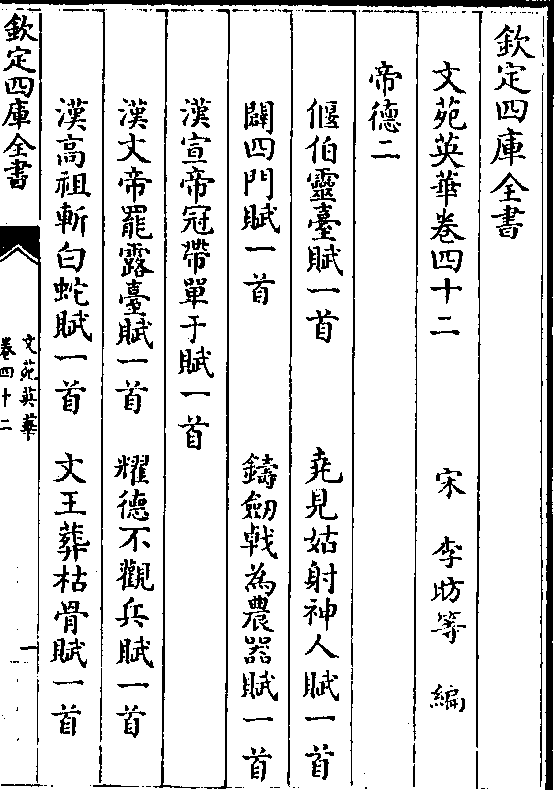 欽定四庫全書
文苑英華卷四十二
宋 李昉等 編
帝德二
偃伯靈臺賦一首 堯見姑射神人賦一首
闢四門賦一首 鑄劒㦸為農器賦一首
漢宣帝冠帶單于賦一首
漢文帝罷露臺賦一首 耀德不觀兵賦一首
漢高祖斬白蛇賦一首 文王葬枯骨賦一首
欽定四庫全書
文苑英華
卷四十二
一